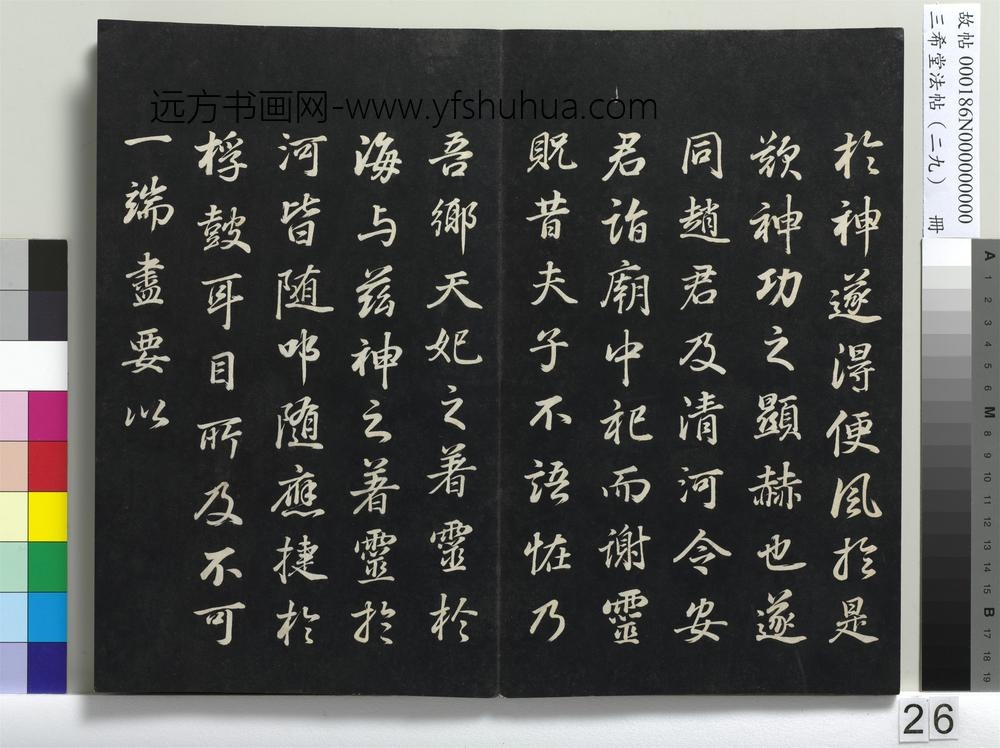 於神遂得便風於是
歎神功之顯赫也遂
同趙君及清河令安
君詣廟中祀而谢靈
貺昔夫子不語恠乃
吾鄉天妃之著靈於
海与兹神之著靈於
河皆随叩随應捷於
桴鼓耳目所及不可
一端盡要以
远方书画网-www.yfshuhua.com
故帖 000186N000000000
三希堂法帖（二九） 冊
A 1 2 3 4 5 6 M 8 9 10 11 12 13 14 15 B 17 18 19
26